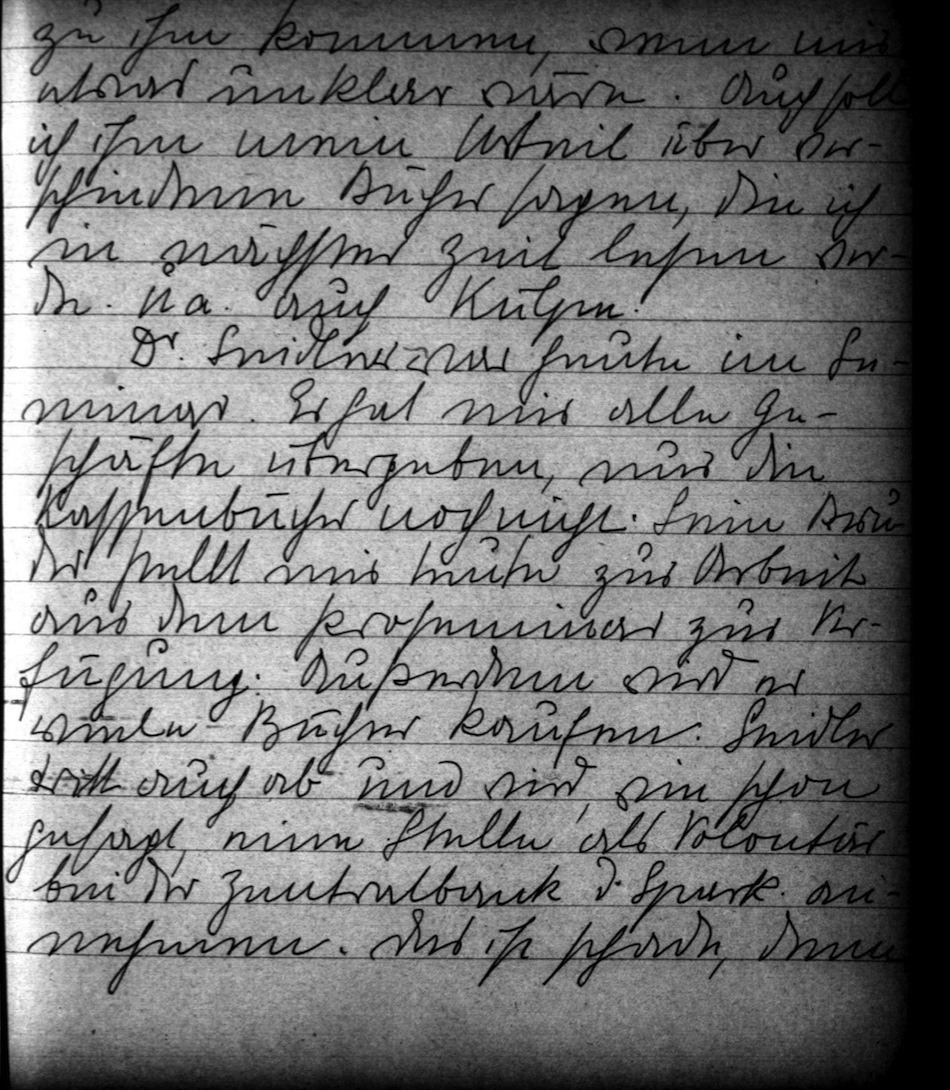 zu ihm kommen, wenn mir
etwas unklar wäre. Auch soll
ich ihm mein Urteil über ver-
schiedene Bücher sagen, die ich
in nächster Zeit lesen wer-
de. U. a. auch Külpe.
Dr. Seidler war heute im Se-
minar. Er hat mir alle Ge-
schäfte übergeben, nur die
Kassenbücher noch nicht. Sein Bru-
der stellt mir heute zur Arbeit
aus dem Proseminar zur Ver-
fügung. Außerdem wird er
viele Bücher kaufen. Seidler
tritt auch ab und wird, wie schon
gesagt, eine Stelle als Volontär
bei der Zentralbank d. Spark. an-
nehmen. Das ist schade, denn